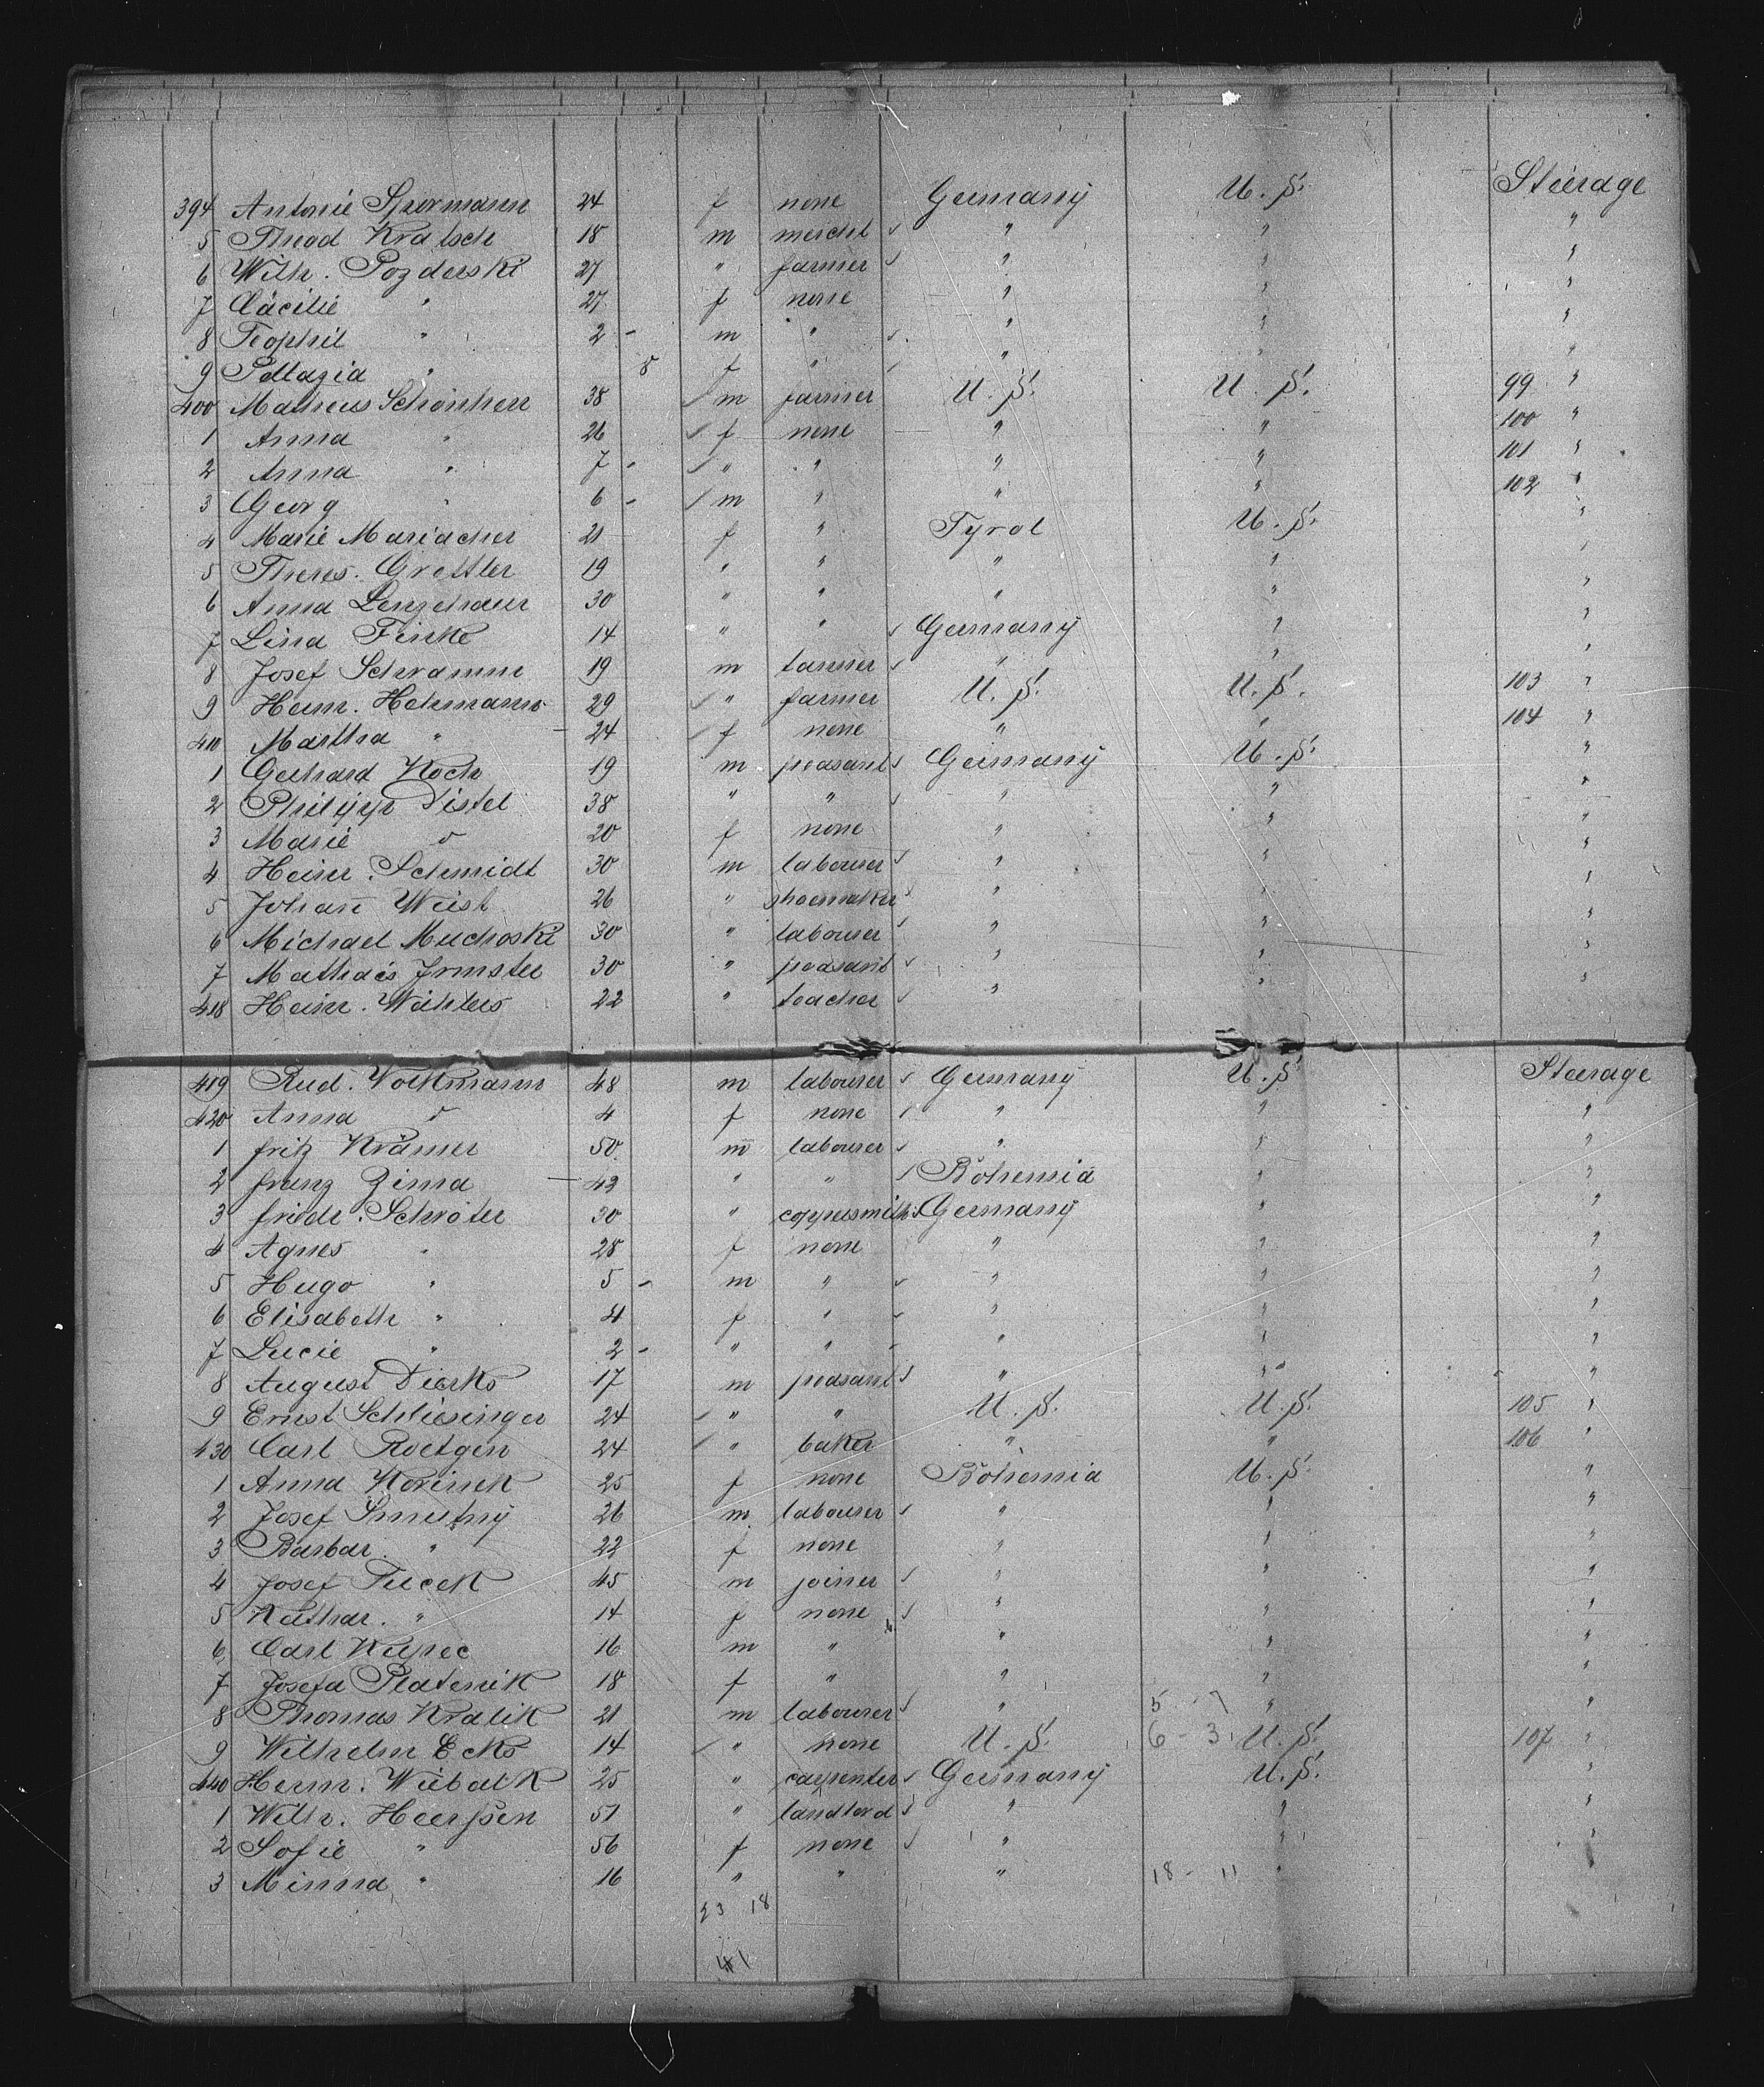 394 Antonie Sperrmann 24 f none Germany U.S. Steerage
5 Theod Kratsch 18 m mercht " " "
6 Wilh. Pozderski 27 " farmer " " "
7 Cäcilie " 27 f none " " "
8 Teophil " 2 - m " " " "
9 Pellagia " 8 f " " " "
400 Matheus Schönherr 38 m farmer U.S. U.S. 99 "
1 Anna " 26 f none " " 100 "
2 Anna " 7 - " " " " 101 "
3 Georg " 6 - m " " " 102 "
4 Marie Mariacher 21 f " Tyrol U.S. "
5 Theres. Grettler 19 " " " " "
6 Anna 30 " " " " "
7 Lina Finke 14 " " Germany " "
8 Josef Schramm 19 m tanner " " "
9 Herm. Hohmann 29 " farmer U.S. U.S. 103 "
410 Martha " 24 f none " " 104 "
1 Gerhard Koch 19 m peasant Germany U.S. "
2 Philipp Distel 38 " " " " "
3 Marie " 20 f none " " "
4 Heinr. Schmidt 30 m labourer " " "
5 Johañ Wüst 26 " shoemaker " " "
6 Michael Muchoski 30 " labourer " " "
7 Mathaes Irmster 30 " peasant " " "
418 Heinr. Wählers 22 " teacher " " "
419 Rud. Volkmann 48 m labourer Germany U.S. Steerage
420 Anna " 4 f none " " "
1 Fritz Krämer 50 m labourer " " "
2 Franz Zima 43 " " Bohemia " "
3 Friedr. Schröter 30 " coppersmith Germany " "
4 Agnes " 28 f none " " "
5 Hugo " 5 - m " " " "
6 Elisabeth " 4 f " " " "
7 Lucie " 2 - " " " " "
8 August Dierks 17 m peasant " " "
9 Ernst Schliesinger 24 " " U.S. U.S. 105 "
430 Carl Roetgen 24 " baker " " 106 "
1 Anna Korinek 25 f none Bohemia U.S. "
2 Josef Smutny 26 m labourer " " "
3 Barbar. " 22 f none " " "
4 Josef Tucek 45 m joiner " " "
5 Kathar. " 14 f none " " "
6 Carl Kupec 16 m " " " "
7 Josefa Platenik 18 f " " " "
8 Thomas Kralik 21 m labourer " 5 - 7 " "
9 Wilhelm Ecks 14 " none U.S. 6 - 3 U.S. 107 "
440 Herm. Wieback 25 " carpenter Germany U.S. "
1 Wilh. Heerssen 51 " landlord " " "
2 Sofie " 56 f none " " "
3 Minna " 16 " " " 18 - 11 "
23 18
41